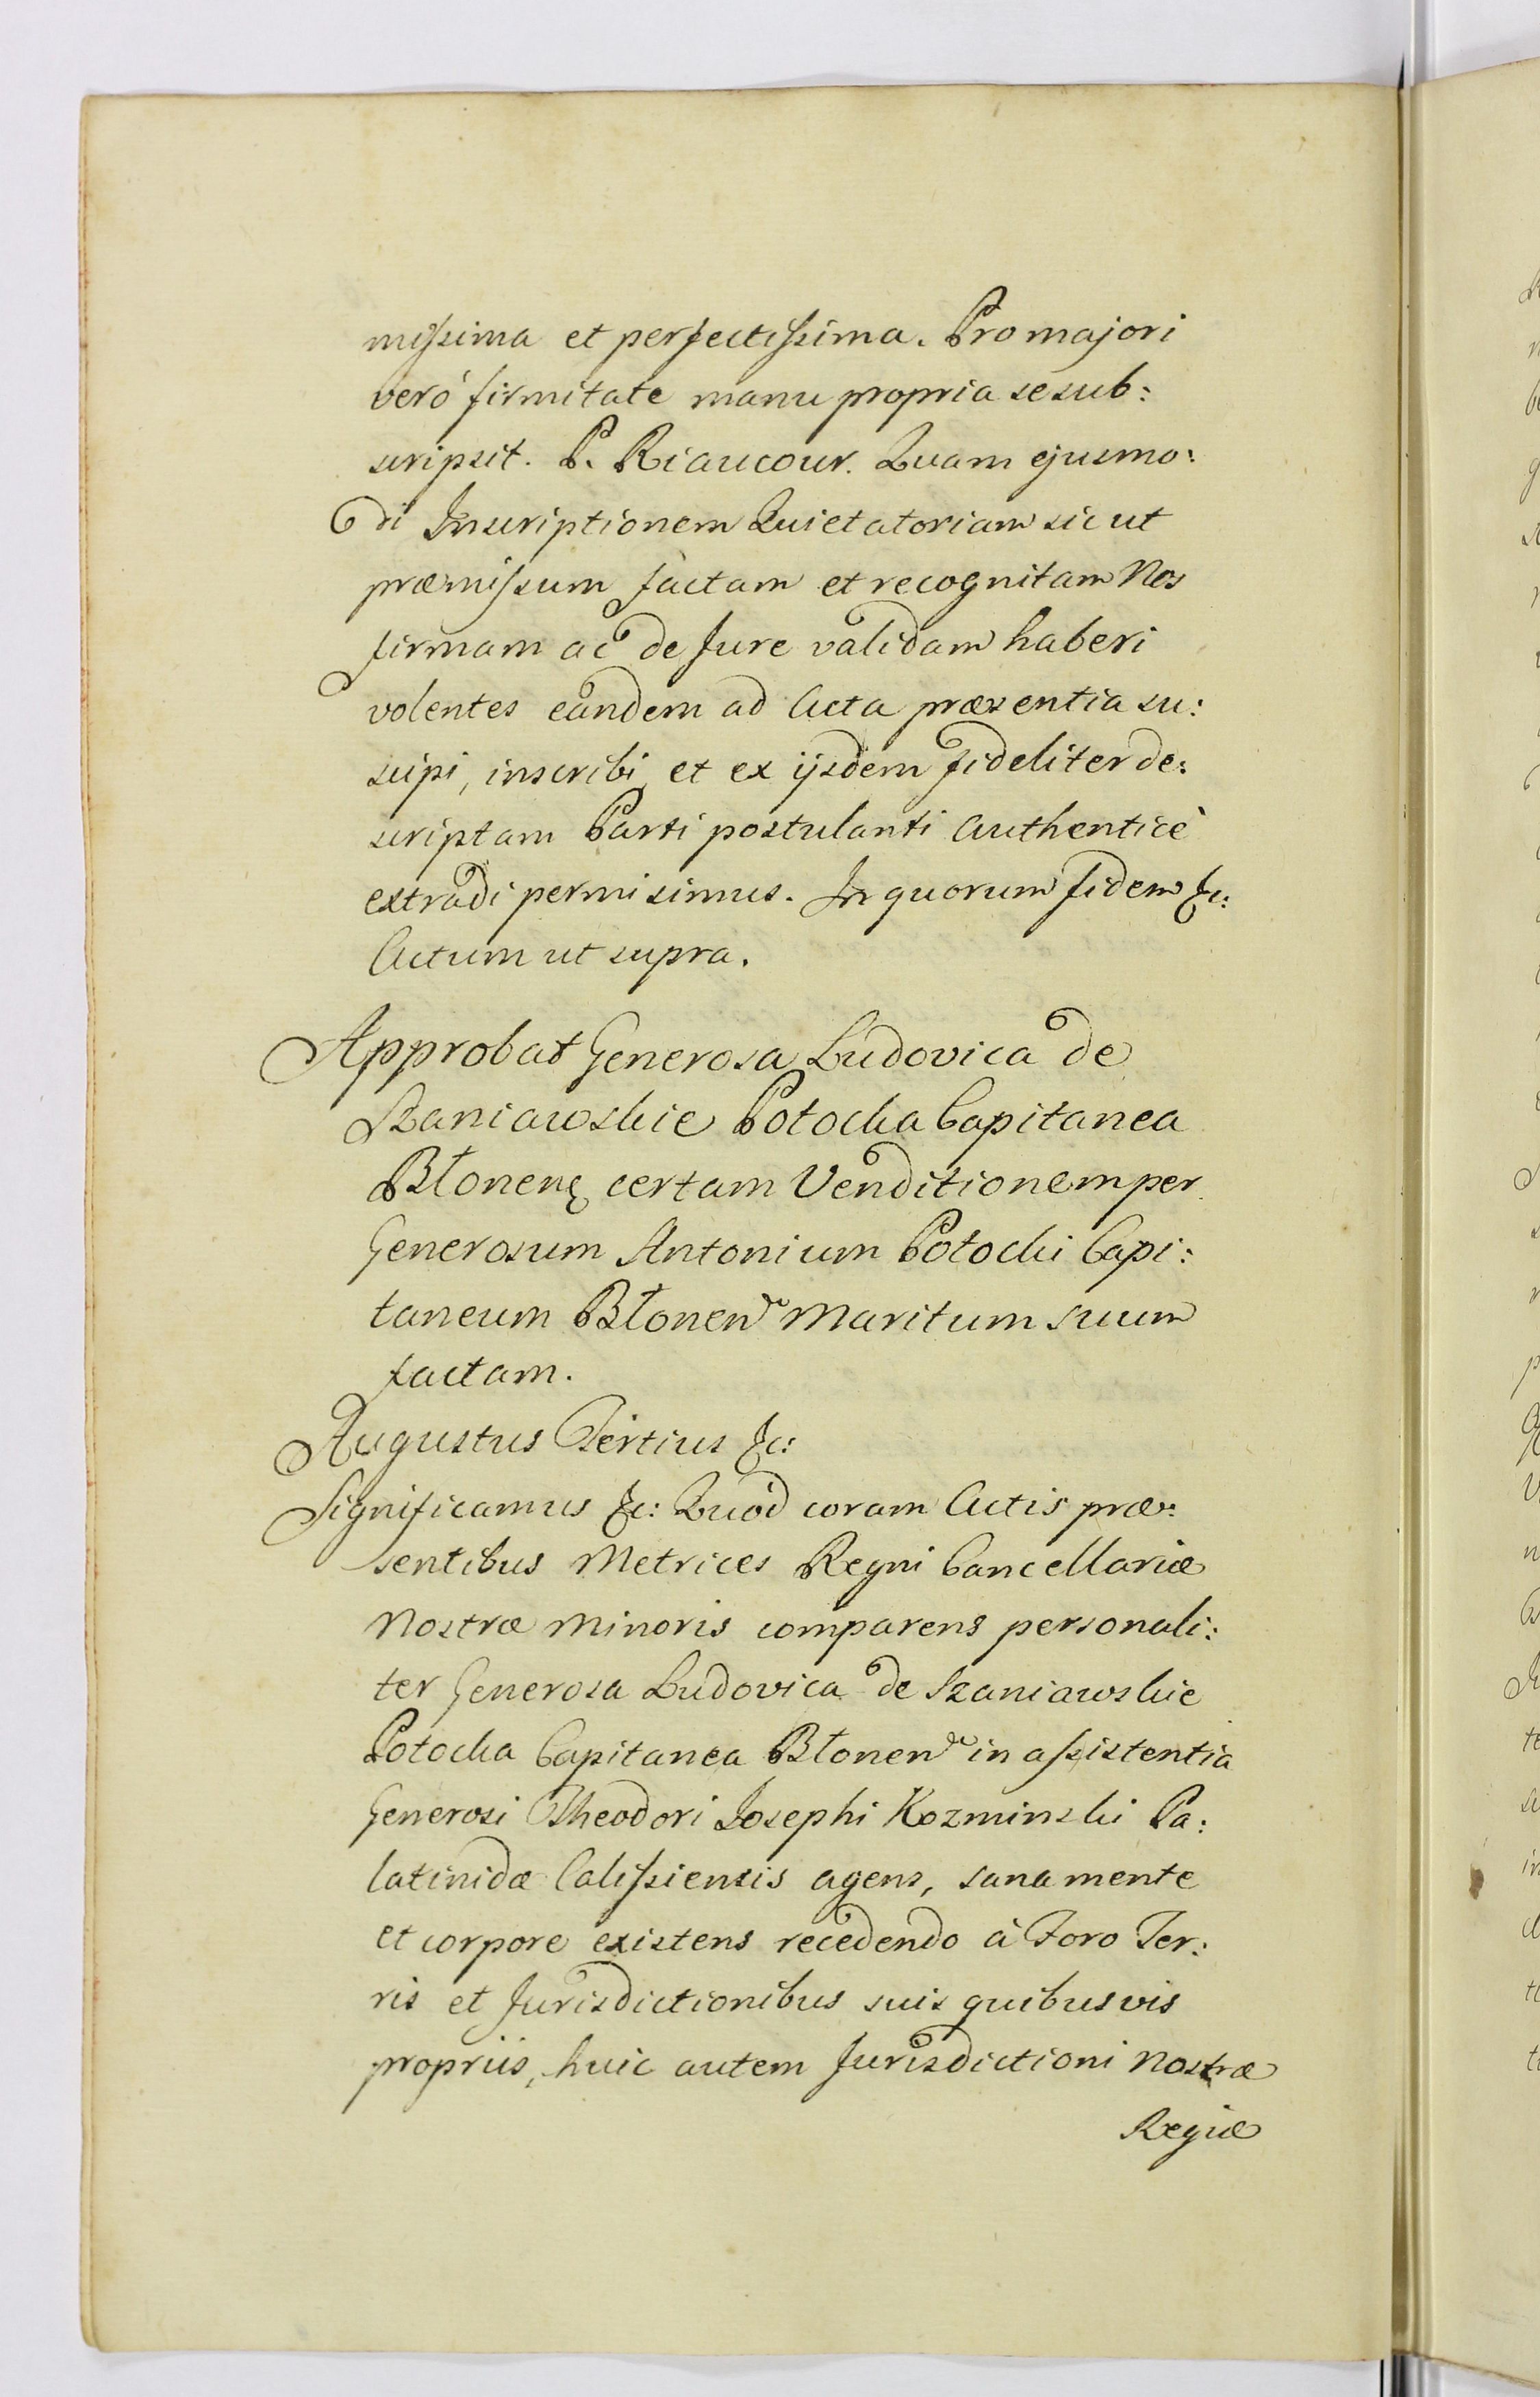 missima et perfectissima. Pro majori
verò firmitate manu propria se sub:
scripsit. P. Riaucour. Quam ejusmo:
di Inscriptionem Quietatoriam sic ut
præmissum factam et recognitam Nos
firmam ac de Jure validam haberi
volentes eandem ad Acta præsentia su:
scipi, inscribi, et ex ijsdem fideliter de:
scriptam Parti postulanti Authenticè
extradi permisimus. In quorum fidem &c:
Actum ut supra.
Approbat Generosa Ludovica de
Szaniawskie Potocka Capitanea
Błonen. certam Venditionem per
Generosum Antonium Potocki Capi:
taneum Błonen. Maritum suum
factam.
Augustus Tertius &c:
Significamus &c: Quod coram Actis præ:
sentibus Metrices Regni Cancellariæ
Nostræ Minoris comparens personali:
ter Generosa Ludovica de Szaniawskie
Potocka Capitanea Błonen. in assistentia
Generosi Theodori Josephi Kozminski Pa:
latinidæ Calissiensis agens, sana mente
et corpore existens recedendo à Foro Ter:
ris et Jurisdictionibus suis quibusvis
propriis, huic autem Jurisdictioni Nostræ
Regiæ